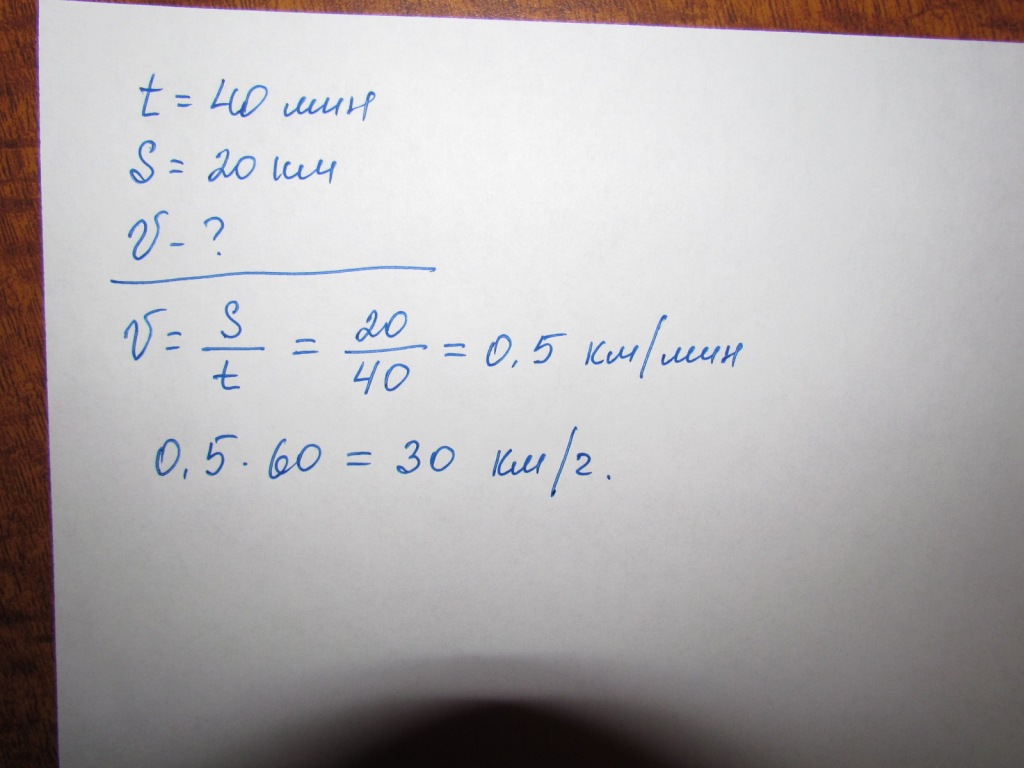 t = 40 мин
S = 20 км
V - ?
V = S/t = 20/40 = 0,5 км/мин
0,5 · 60 = 30 км/г.